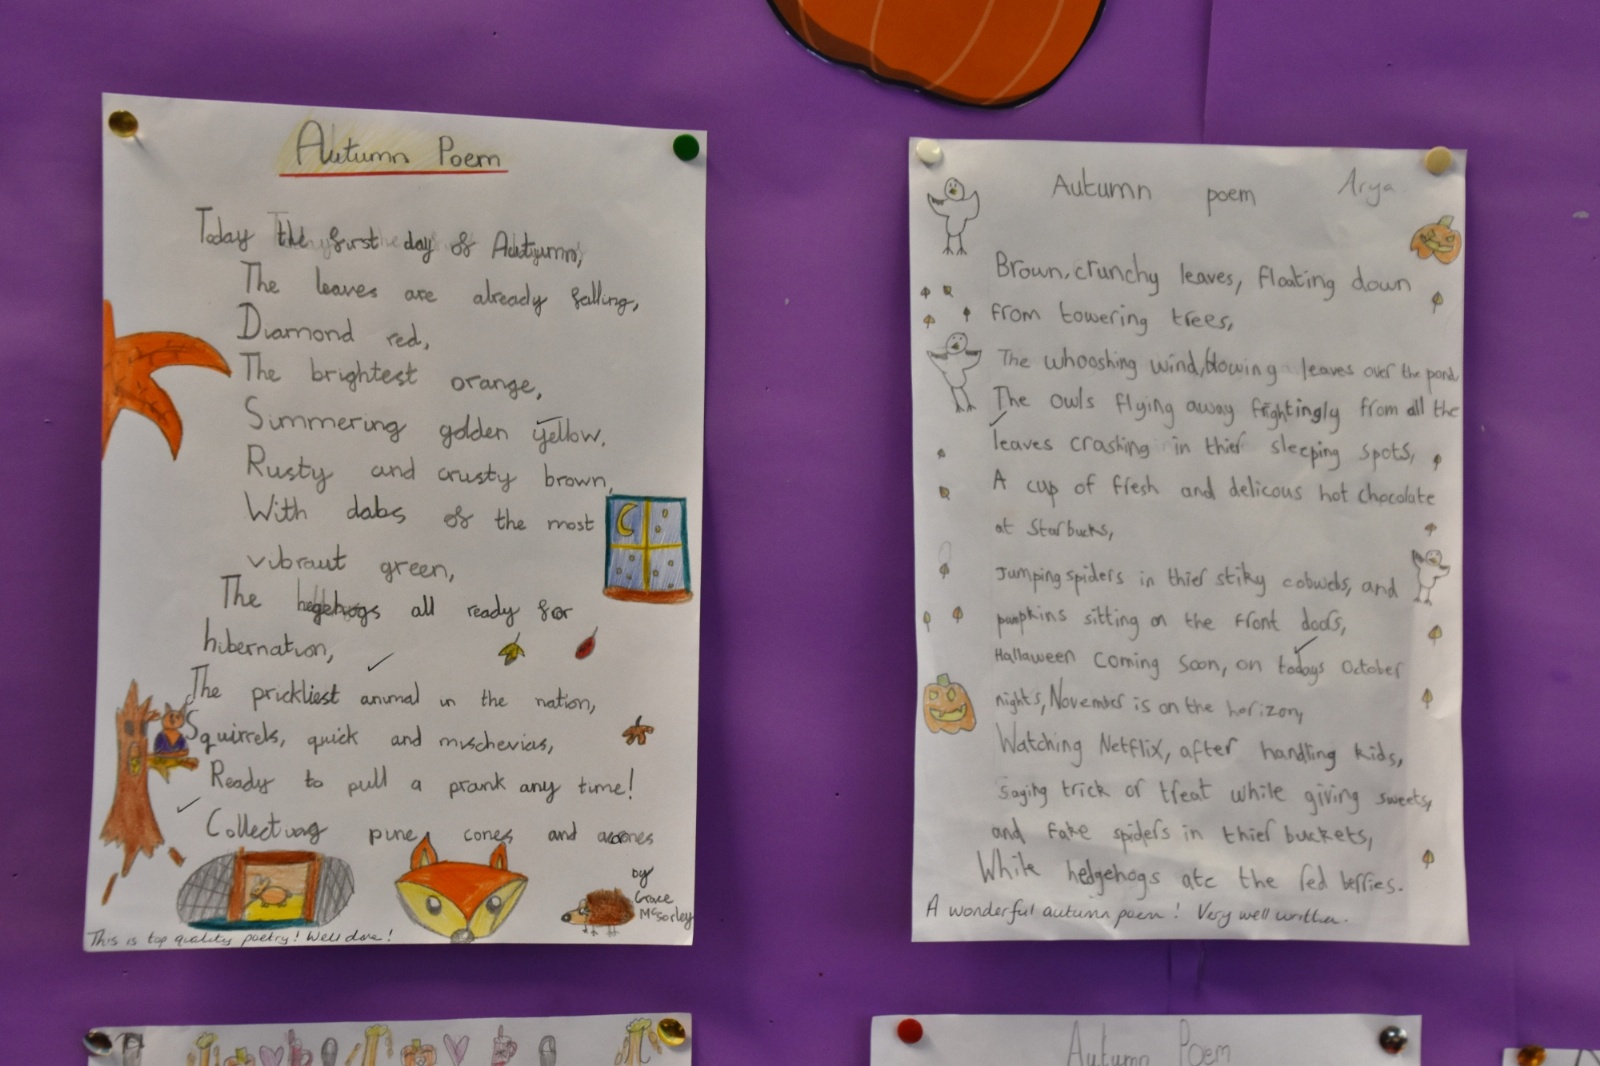 Autumn Poem
Today the first day of Autumn,
The leaves are already falling,
Diamond red,
The brightest orange,
Simmering golden yellow,
Rusty and crusty brown,
With dabs of the most
vibrant green,
The hegehogs all ready for
hibernation,
The prickliest animal in the nation,
Squirrels, quick and mischevias,
Ready to pull a prank any time!
Collecting pine cones and
by
Grace
McSorley
This is top quality poetry! Well done!
Autumn poem Arya
Brown, crunchy leaves, floating down
from towering trees,
The whooshing wind, blowing leaves over the pond
The owls flying away frightingly from all the
leaves crashing in thier sleeping spots,
A cup of fresh and delicous hot chocolate
at Starbucks,
Jumping spiders in thier stiky cobwebs, and
pumpkins sitting on the front doors,
Hallaween coming soon, on todays October
nights, November is on the horizon,
Watching Netflix, after handling kids,
saying trick or treat while giving sweets,
and fake spiders in thier buckets,
While hedgehogs ate the red berries.
A wonderful autumn poem! Very well written.
Autumn Poem